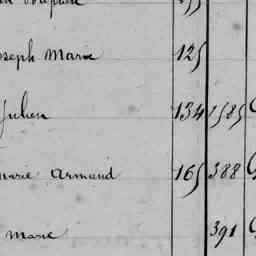 oseph Marie 125
Julien 134 1585
Marie Armand 165 388
Marie 391